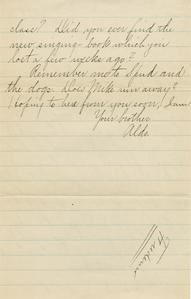 class? Did you ever find the
new singing-book which you
lost a few weeks ago?
Remember me to Spud and
the dogs. Does Mike run away?
Hoping to hear from you soon, I am
Your brother
Aldo